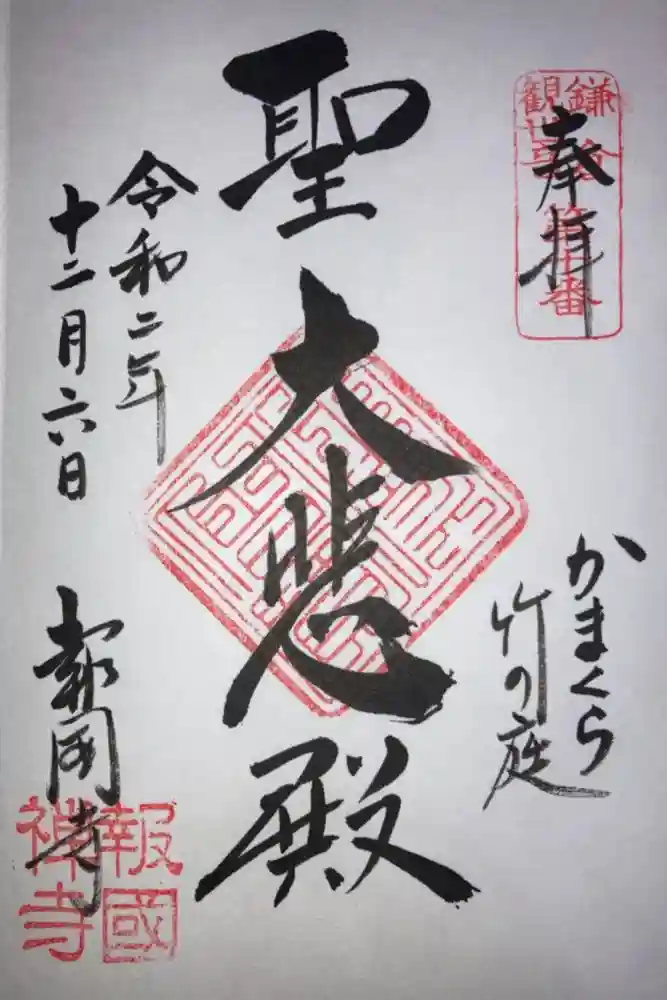 奉拝
鎌倉
観世音
第十番
かまくら
竹の庭
聖大悲殿
令和二年
十二月六日
報国寺
報國
禅寺